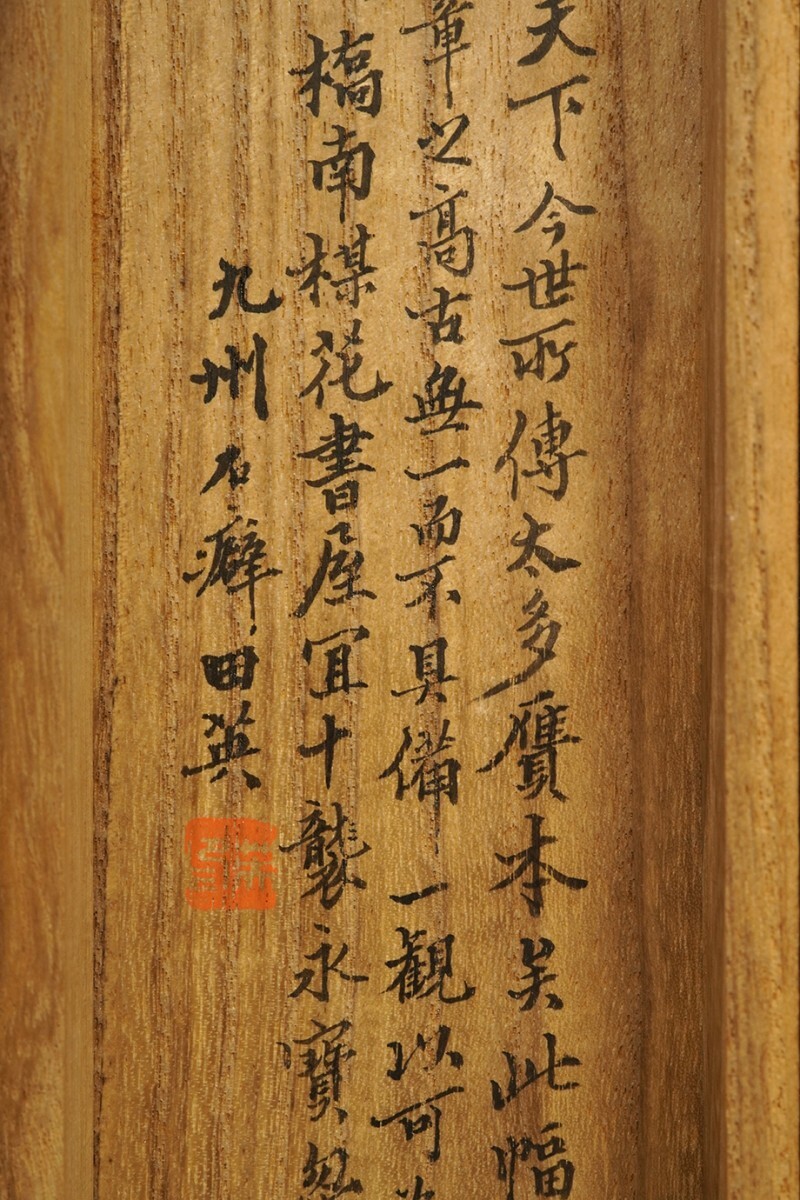 天下今世所傳太多贋本矣此幅
章之高古無一而不具備一觀以可
橋南楳花書屋宜十襲永寶
九州石癖田英